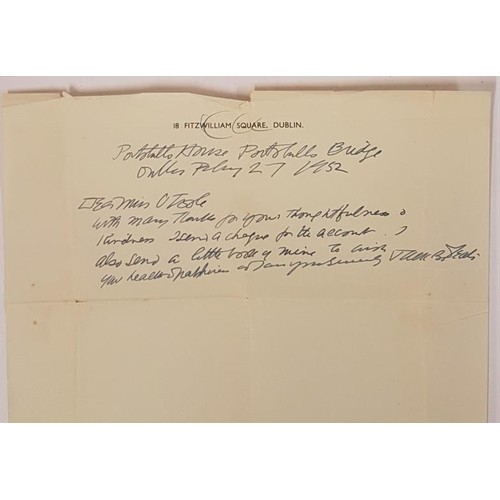 18 FITZWILLIAM SQUARE, DUBLIN.
Portobello House Portobello Bridge
Dublin Feby 27 1952
Dear Miss O'Toole
with many thanks for your thoughtfulness &
kindness I send a cheque for the account. I
also send a little book of mine to wish
you health & happiness Yours sincerely Jack B Yeats